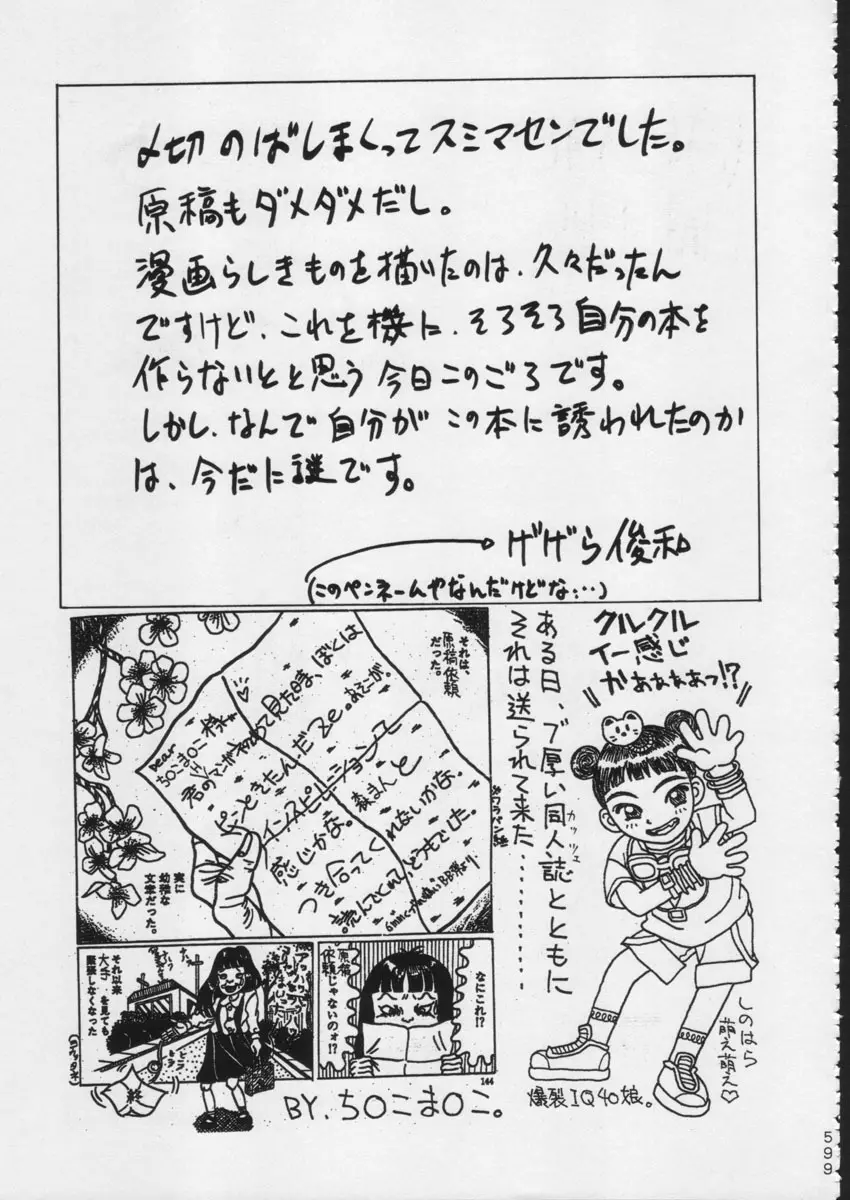 〆切のばしまくってスミマセンでした。
原稿もダメダメだし。
漫画らしきものを描いたのは、久々だったん
ですけど、これを機に、そろそろ自分の本を
作らないとと思う今日このごろです。
しかし、なんで自分がこの本に誘われたのか
は、今だに謎です。
げげら俊和
(このペンネームやなんだけどな…)
クルクル
イー感じ
かぁぁぁぁっ!?
ある日、ブ厚い同人誌とともに
カッシュ
それは送られて来た…………
それは、
原稿依頼
だった。
Dear
ち〇こま〇こ様
君のマンガ
って見た時、ぼくは
ピンときたんだZe。
インスピレーション
感じかな。
森まんと
つき合ってくれないかな。
読んでくれて、どうもでした。
※ワラバン紙
実に
幼稚な
文章だった。
なにこれ!?
原稿
依頼じゃないのォ!?
144
それ以来
大手を見ても
緊張しなくなった
終
BY.ち〇こま〇こ。
しのはら
萌え萌え♡
爆裂IQ40娘。
599